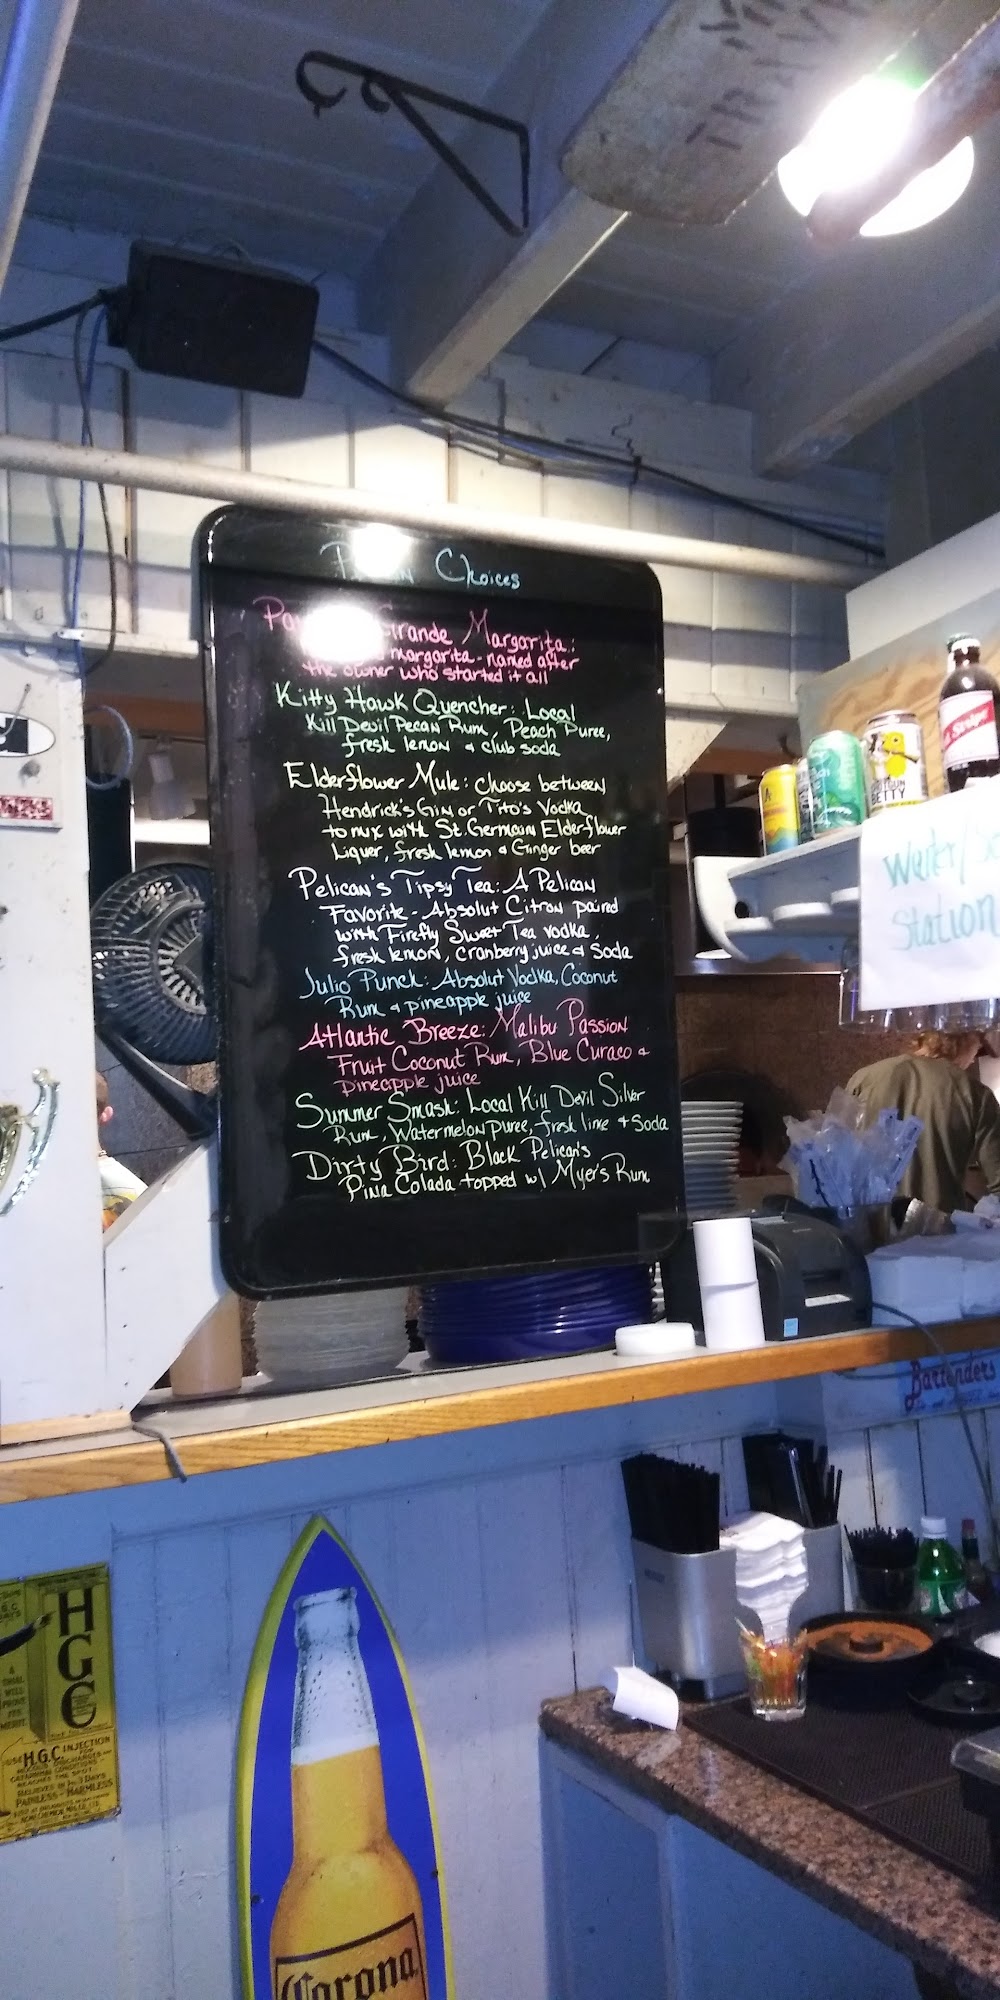 TRAV
Choices
Grande Margarita:
margarita - named after
the owner who started it all
Kitty Hawk Quencher: Local
Kill Devil Pecan Rum, Peach Puree,
fresh lemon & club soda
Elderflower Mule: Choose between
Hendrick's Gin or Tito's Vodka
to mix with St. Germain Elderflower
Liquer, fresh lemon & Ginger beer
Pelican's Tipsy Tea: A Pelican
Favorite - Absolut Citron paired
with Firefly Sweet Tea vodka,
fresh lemon, cranberry juice & Soda
Julio Punch: Absolut Vodka, Coconut
Rum & pineapple juice
Atlantic Breeze: Malibu Passion
Fruit Coconut Rum, Blue Curaco &
pineapple juice
Summer Smash: Local Kill Devil Silver
Rum, Watermelon puree, fresh lime & Soda
Dirty Bird: Black Pelican's
Pina Colada topped w/ Myer's Rum
BETTY
Red Stripe
Water/
Station
Bartenders
HGC
A
TRIAL
WILL
PROVE
ITS
MERIT
USE H.G.C. INJECTION
FOR
MUCOUS DISCHARGES
CATARRHAL CONDITIONS
REACHES THE SPOT
RELIEVES IN 1 TO 5 DAYS
PAINLESS - HARMLESS
Corona